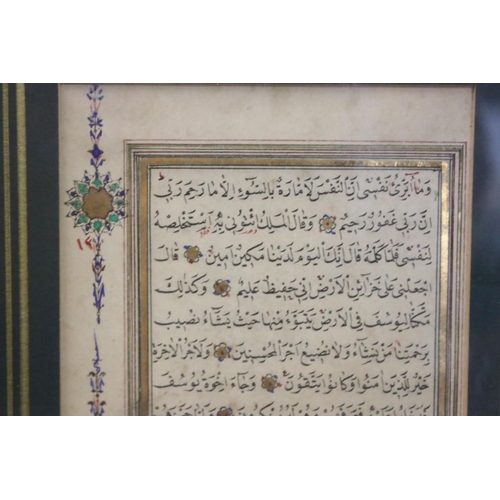 وَمَا أُبَرِّئُ نَفْسِي إِنَّ النَّفْسَ لَأَمَّارَةٌ بِالسُّوءِ إِلَّا مَا رَحِمَ رَبِّي
إِنَّ رَبِّي غَفُورٌ رَحِيمٌ وَقَالَ الْمَلِكُ ائْتُونِي بِهِ أَسْتَخْلِصْهُ
لِنَفْسِي فَلَمَّا كَلَّمَهُ قَالَ إِنَّكَ الْيَوْمَ لَدَيْنَا مَكِينٌ أَمِينٌ قَالَ
اجْعَلْنِي عَلَى خَزَائِنِ الْأَرْضِ إِنِّي حَفِيظٌ عَلِيمٌ وَكَذَلِكَ
مَكَّنَّا لِيُوسُفَ فِي الْأَرْضِ يَتَبَوَّءُ مِنْهَا حَيْثُ يَشَاءُ نُصِيبُ
بِرَحْمَتِنَا مَنْ نَشَاءُ وَلَا نُضِيعُ أَجْرَ الْمُحْسِنِينَ وَلَأَجْرُ الْآخِرَةِ
خَيْرٌ لِلَّذِينَ آمَنُوا وَكَانُوا يَتَّقُونَ وَجَاءَ إِخْوَةُ يُوسُفَ